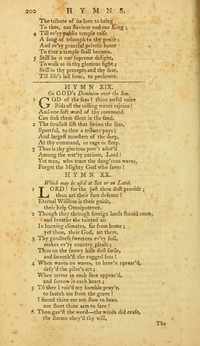 200 HYMNS.
The tribute of his love to bring
To thee, our Saviour and our King;
4 Till ev'ry public temple raise
A song of triumph to thy praise;
And ev'ry peaceful private home
To thee a temple shall become.
5 Still be it our supreme delight,
To walk as in thy glorious sight;
Still in thy precepts and thy fear,
Till life's last hour, to persevere.
HYMN XIX.
On GOD's Dominion over the Sea.
GOD of the seas! thine awful voice
Bids all the rolling waves rejoice!
And one soft word of thy command
Can sink them silent in the sand.
2 The smallest fish that swims the seas,
Sportful, to thee a tribute pays;
And largest monsters of the deep,
At thy command, or rage or sleep.
3 Thus is thy glorious pow'r ador'd
Among the wat'ry nations, Lord!
Yet men, who trace the dang'rous waves,
Forget the Mighty God who saves!
HYMN XX.
Which may be used at Sea or on Land.
LORD! for the just thou dost provide;
thou art their sure defence!
Eternal Wisdom is their guide,
their help Omnipotence.
2 Though they through foreign lands should roam,
and breathe the tainted air
In burning climates, far from home;
yet thou, their God, art there.
3 Thy goodness sweetens ev'ry soil,
makes ev'ry country please;
Thou on the snowy hills dost smile,
and smooth'st the rugged seas!
4 When waves on waves, to heav'n uprear'd,
defy'd the pilot's art;
When terror in each face appear'd,
and sorrow in each heart;
5 To thee I rais'd my humble pray'r,
to snatch me from the grave!
I found thine ear not slow to hear,
nor short thine arm to save!
6 Thou gav'st the word—the winds did cease,
the storms obey'd thy will,
The